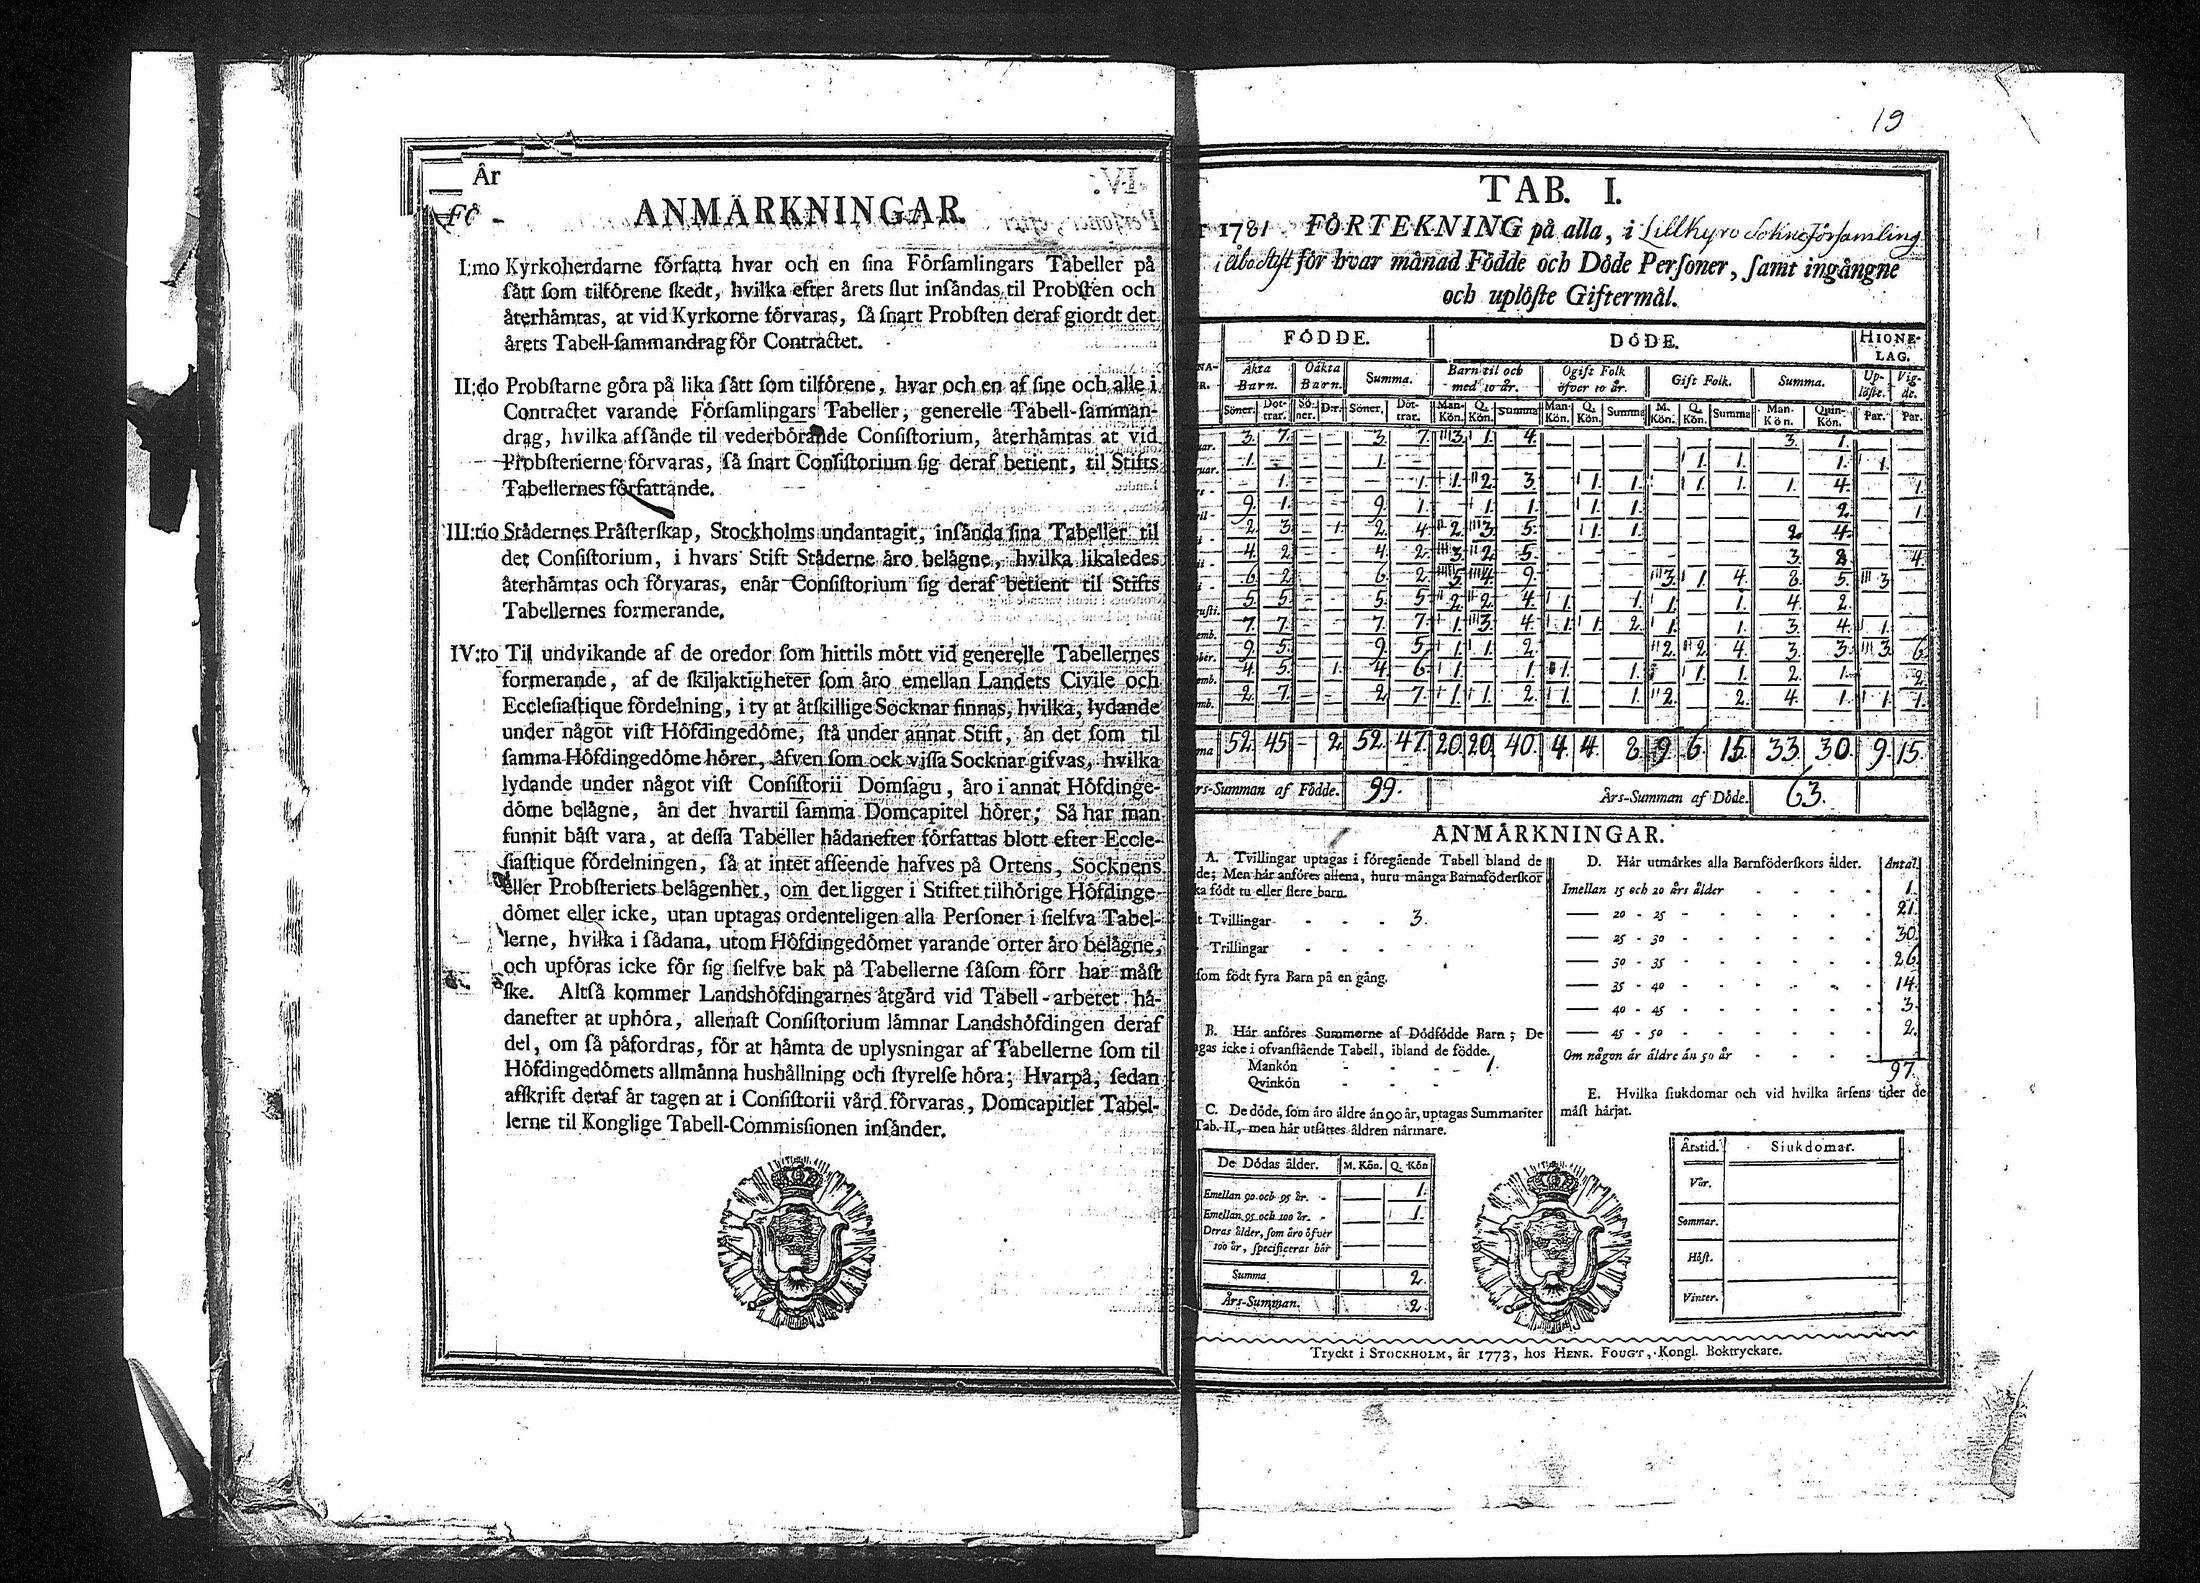 År
Fö -
ANMÄRKNINGAR.
I:mo Kyrkoherdarne författa hvar och en sina Församlingars Tabeller på
sätt som tilförene skedt, hvilka efter årets slut insändas til Probsten och
återhämtas, at vid Kyrkorne förvaras, så snart Probsten deraf giordt det
årets Tabell-sammandrag för Contractet.
II:do Probstarne göra på lika sätt som tilförene, hvar och en af sine och alle i
Contractet varande Församlingars Tabeller, generelle Tabell-samman-
drag, hvilka afsände til vederbörande Consistorium, återhämtas at vid
Probsterierne förvaras, så snart Consistorium sig deraf betient, til Stifts
Tabellernes författande.
III:tio Städernes Prästerskap, Stockholms undantagit, insända sina Tabeller til
det Consistorium, i hvars Stift Städerne äro belägne, hvilka likaledes
återhämtas och förvaras, enär Consistorium sig deraf betient til Stifts
Tabellernes formerande.
IV:to Til undvikande af de oredor som hittils mött vid generelle Tabellernes
formerande, af de skiljaktigheter som äro emellan Landets Civile och
Ecclesiastique fördelning, i ty at åtskillige Socknar finnas, hvilka, lydande
under något vist Höfdingedöme, stå under annat Stift, än det som til
samma Höfdingedöme hörer, äfven som ock vissa Socknar gifvas, hvilka
lydande under något vist Consistorii Domsagu, äro i annat Höfdinge-
döme belägne, än det hvartil samma Domcapitel hörer; Så har man
funnit bäst vara, at dessa Tabeller hädanefter författas blott efter Eccle-
siastique fördelningen, så at intet afseende hafves på Ortens, Socknens
eller Probsteriets belägenhet, om det ligger i Stiftet tilhörige Höfdinge-
dömet eller icke, utan uptagas ordenteligen alla Personer i sielfva Tabel-
lerne, hvilka i sådana, utom Höfdingedömet varande orter äro belägne,
och upföras icke för sig sielfve bak på Tabellerne såsom förr har mäst
ske. Altså kommer Landshöfdingarnes åtgård vid Tabell-arbetet hä-
danefter at uphöra, allenast Consistorium lämnar Landshöfdingen deraf
del, om så påfordras, för at hämta de uplysningar af Tabellerne som til
Höfdingedömets allmänna hushållning och styrelse höra; Hvarpå, sedan
afskrift deraf är tagen at i Consistorii vård förvaras, Domcapitlet Tabel-
lerne til Konglige Tabell-Commissionen insänder.
19
TAB. I.
1781. FÖRTEKNING på alla, i Lillkyro Sokne Församling
i Åbo Stift för hvar månad Födde och Döde Personer, samt ingångne
och uplöste Giftermål.
FÖDDE. DÖDE. HIONE-
LAG.
Äkta Barn. Oäkta Barn. Summa. Barn til och med 10 år. Ogift Folk öfver 10 år. Gift Folk. Summa. Up-löste. Vig-de.
Söner. Döt-trar. Sö-ner. D:r. Söner. Döt-trar. Man-Kön. Q. Kön. Summa Man-Kön. Q. Kön. Summa M. Kön. Q. Kön. Summa Man-Kön. Quin-Kön. Par. Par.
uar. 3. 7. - - 3. 7. 3. 1. 4. 3. 1.
uar. 1. 1. 1. 1. 1. 1.
1. 1. 1. 2. 3. 1. 1. 1. 1. 1. 4. 1.
9. 1. 9. 1. 1. 1. 1. 1. 2. 1.
2. 3. 1. 2. 4. 2. 3. 5. 1. 1. 2. 4.
4. 2. 4. 2. 3. 2. 5. 3. 2. 4.
6. 2. 6. 2. 5. 4. 9. 3. 1. 4. 8. 5. 3.
usti. 5. 5. 5. 5. 2. 2. 4. 1. 1. 1. 1. 4. 2.
emb. 7. 7. 7. 7. 1. 3. 4. 1. 1. 2. 1. 1. 3. 4. 1.
ober. 9. 5. 9. 5. 1. 1. 2. 2. 2. 4. 3. 3. 3. 6.
emb. 4. 5. 1. 4. 6. 1. 1. 1. 1. 1. 1. 2. 1. 2.
mb. 2. 7. 2. 7. 1. 1. 2. 1. 1. 2. 2. 4. 1. 1. 1.
ma 52. 45. - 2. 52. 47. 20. 20. 40. 4. 4. 8. 9. 6. 15. 33. 30. 9. 15.
rs-Summan af Födde. 99. Års-Summan af Döde. 63.
ANMÄRKNINGAR.
A. Tvillingar uptagas i föregående Tabell bland de
de; Men här anföres allena, huru många Barnaföderskor
ka födt tu eller flere barn.
Tvillingar - - - 3.
Trillingar - - -
som födt fyra Barn på en gång.
B. Här anföres Summorne af Dödfödde Barn; De
gas icke i ofvanstående Tabell, ibland de födde.
Mankön - - - 1.
Qvinkön - - -
C. De döde, som äro äldre än 90 år, uptagas Summariter
Tab. II, men här utsättes åldren närmare.
De Dödas ålder. M. Kön. Q. Kön
Emellan 90 och 95 år. - 1.
Emellan 95 och 100 år. - 1.
Deras ålder, som äro öfver
100 år, specificeras här
Summa 2.
Års-Summan. 2.
D. Här utmärkes alla Barnföderskors ålder. Antal.
Imellan 15 och 20 års ålder - - - 1.
20 - 25 - - - 21.
25 - 30 - - - 30.
30 - 35 - - - 26.
35 - 40 - - - 14.
40 - 45 - - - 3.
45 - 50 - - - 2.
Om någon är äldre än 50 år - - -
97.
E. Hvilka siukdomar och vid hvilka årsens tider de
mäst härjat.
Årstid. Siukdomar.
Vår.
Sommar.
Höst.
Vinter.
Tryckt i STOCKHOLM, år 1773, hos HENR. FOUGT, Kongl. Boktryckare.